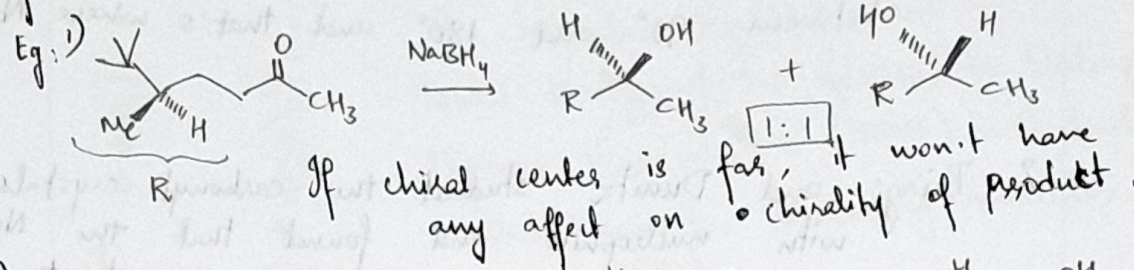 Eg: 1)
O
CH3
Me
H
R
NaBH4
H
OH
R
CH3
+
1:1
HO
H
R
CH3
If chiral center is far, it won't have
any affect on chirality of product.
H
OH